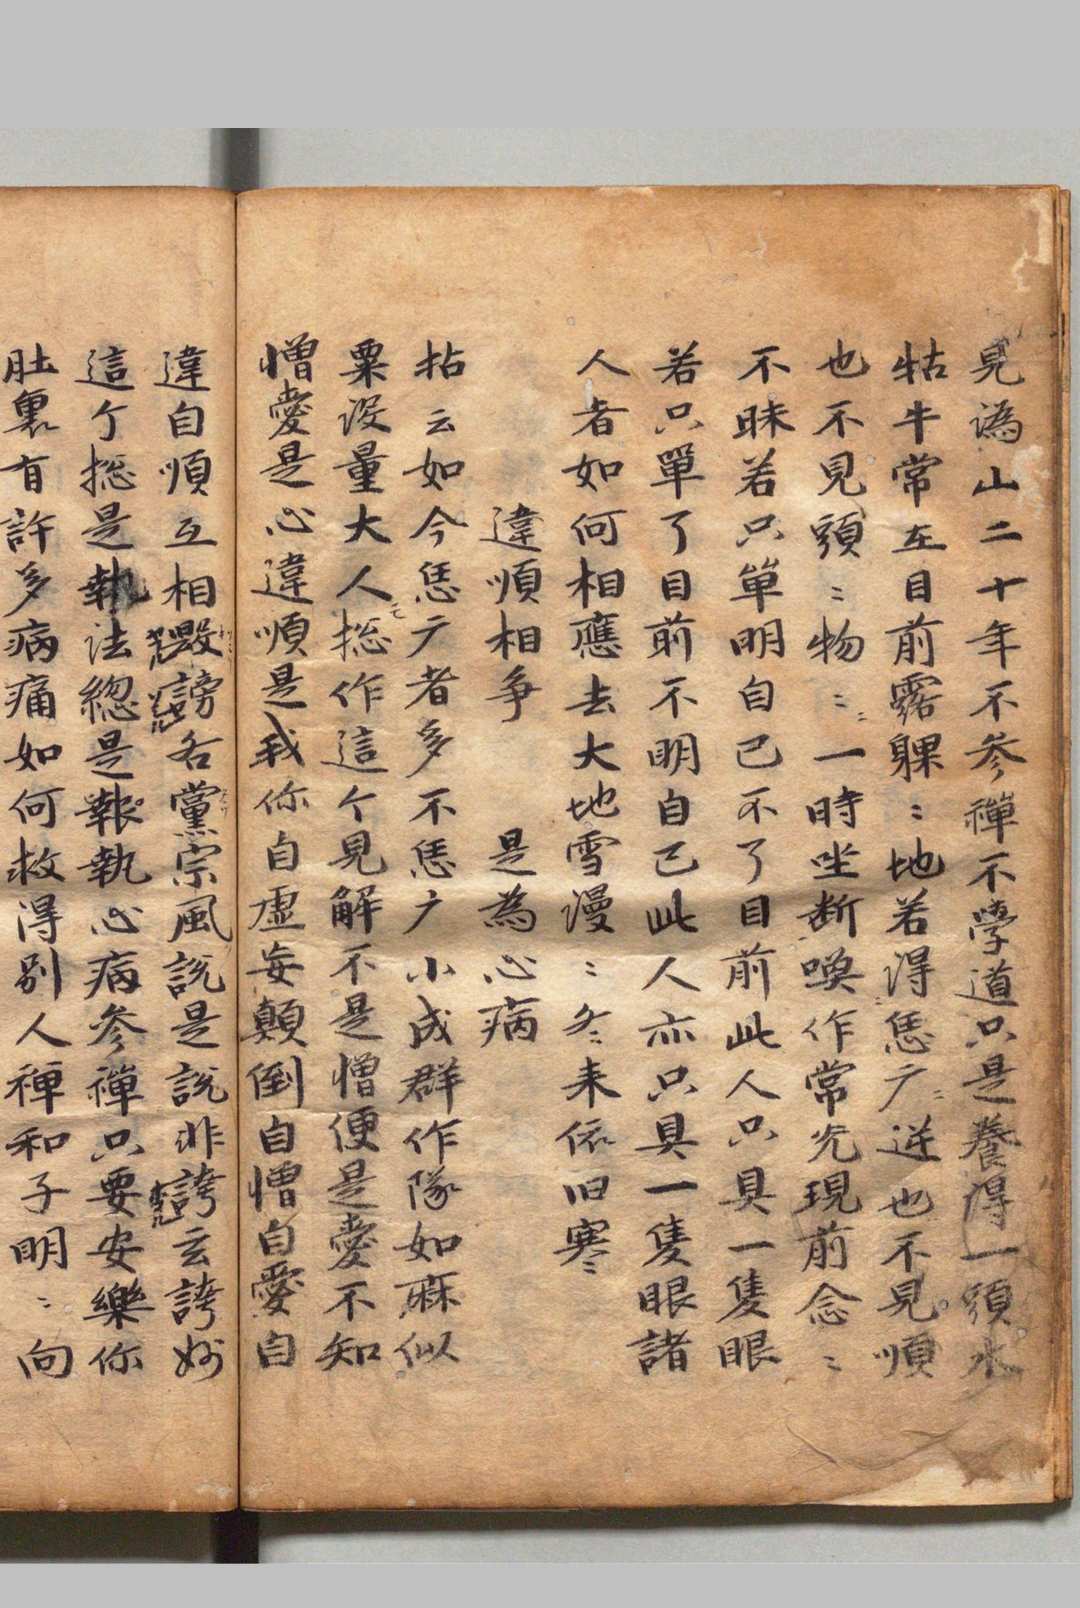 見溈山二十年不參禪不學道只是養得一頭水
牯牛常在目前露躶〻地若得恁广〻逆也不見順
也不見頭〻物〻一時坐断喚作常光現前念〻
不昧若只單明自己不了目前此人只具一隻眼
若只單了目前不明自己此人亦只具一隻眼諸
人者如何相應去大地雪漫〻冬来依旧寒〻
違順相争 是為心病
拈云如今恁广者多不恁广小成群作隊如麻似
粟没量大人捴作這个見解不是憎便是愛不知
憎愛是心違順是我你自虚妄顛倒自憎自愛自
違自順互相毀謗各黨宗風説是説非誇玄誇妙
這个捴是執法總是報執心病参禪只要安樂你
肚裏有許多病痛如何救得別人禅和子明〻向